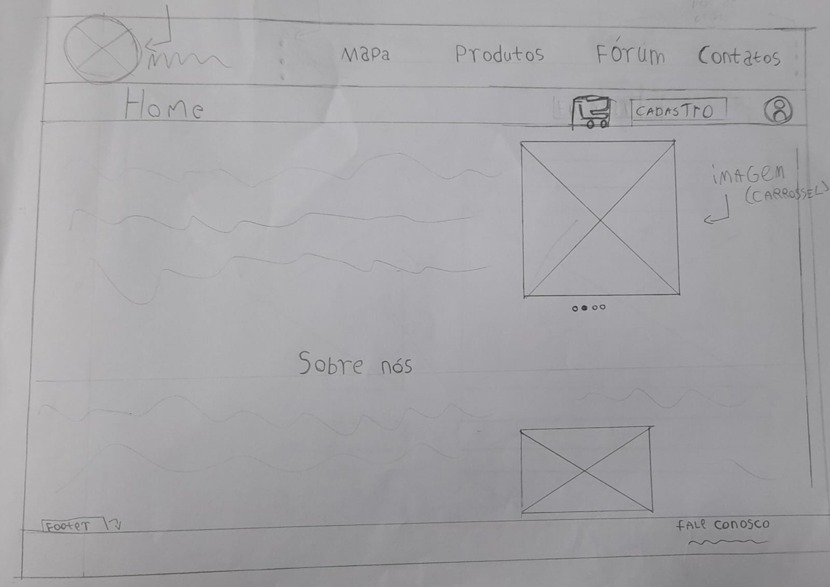 Mapa Produtos Fórum Contatos
Home
CADASTRO
imAGEm
(CARROSSEL)
Sobre nós
FOOTER
FALE CONOSCO